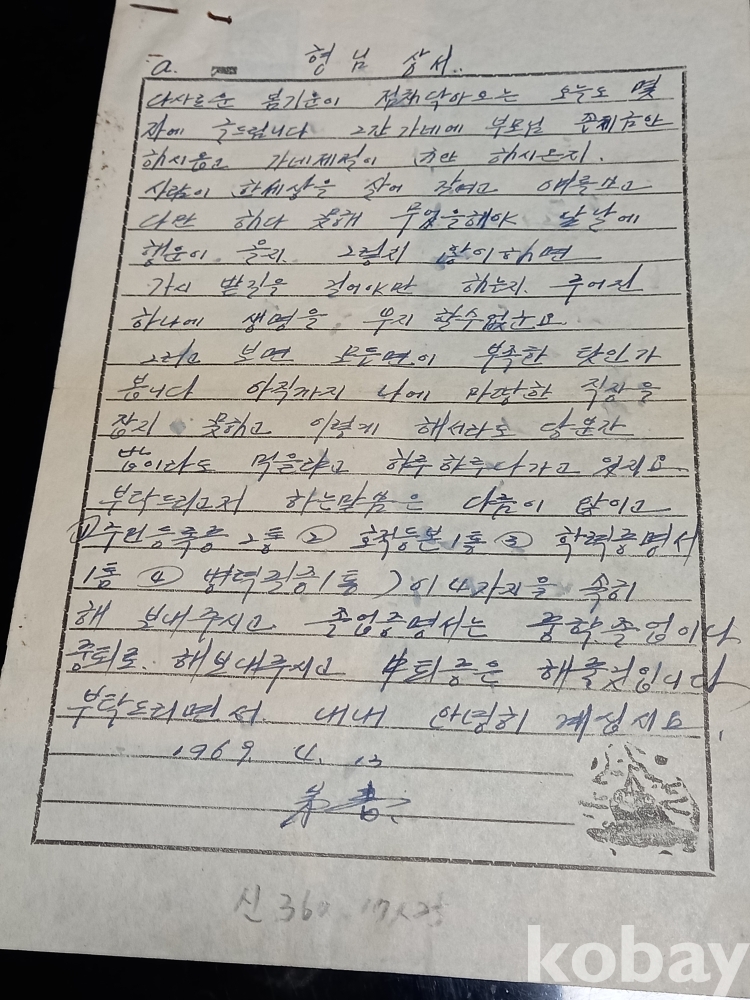 a. 형님 상서..
다사로운 봄기운이 점차닥아오는 오늘도 몇
자에 글드립니다 그간 가네에 부모님 존체금안
하시옵고 가네제절이 하시온지.
사람이 한세상을 살어 작여고 애를보고
다만 하다 못해 무엇을해야 날날에
행운이 올지. 그렇치 않이하면
가시 밭길을 걸어야만 하는지. 주어진
하나에 생명을 부지 할수없군요.
그리고 보면 모든면이 부족한 탓인가
봅니다 아직까지 나에 마땅한 직장을
잡지 못하고 이렇게 해서라도 당분간
밥이라도 먹을라고 하루하루나가고 있지요
부탁드리고저 하는말씀은 다름이 않이고
①주민등록증 2통 ② 호적등본 1통 ③ 학력증명서
1통 ④ 병력필증 1통) 이 4가지을 속히
해 보내주시고 졸업증명서는 중학졸업이나
중퇴로. 해보내주시고 中퇴증은 해줄것입니다
부탁드리면서. 내내 안녕히 계십시요.
1969. 4. 13
弟 書
신 360
kobay